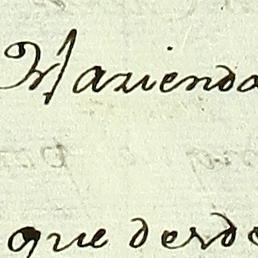 Hazienda
que desde